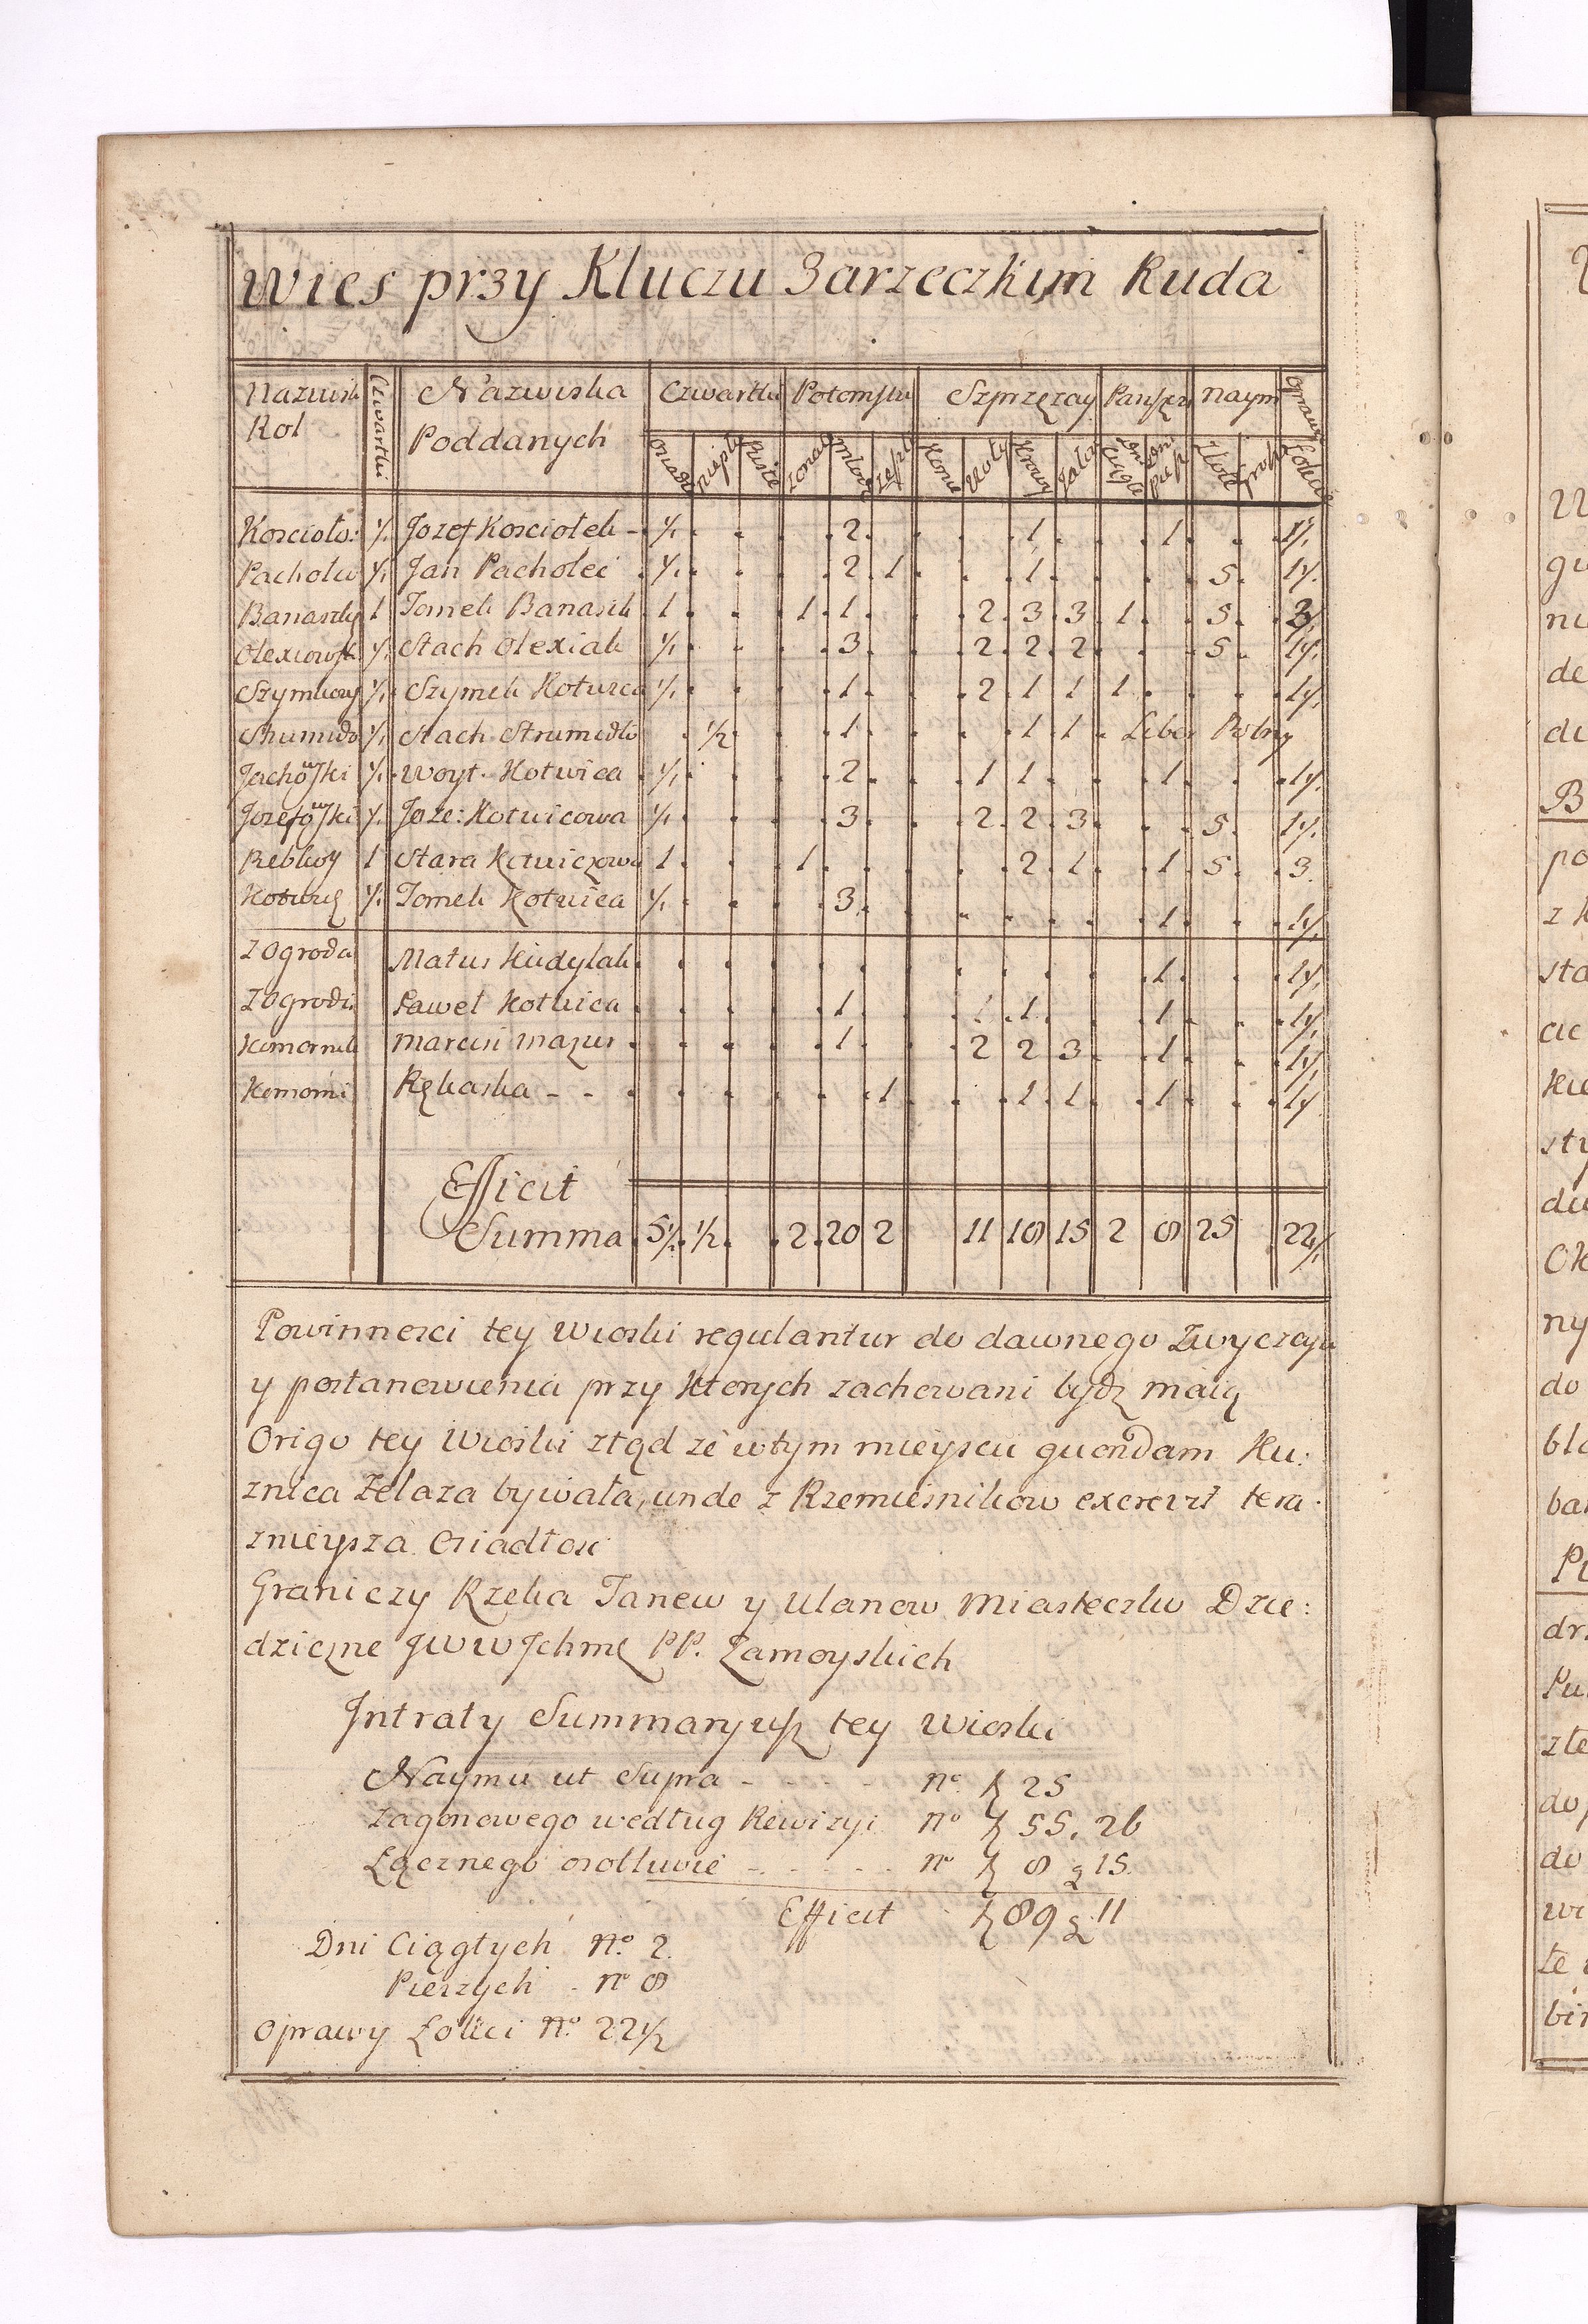 Wies przy Kluczu Zarzeczkim Ruda
Nazwisk Czwartki Nazwiska Czwartki Potomstw Szprzęzay Panszcz naym oprawy
Rol Poddanych osiadł niepł Puste zonat młodz zesz Konie Woły Krowy Jałow Dni ciągłe Dni piesz Złote grosz Łokci
Kosciołw: ½. Jozef Kosciołek - ½ . . . 2 . . . 1 . . 1 . . 1½.
Pacholw ½ Jan Pacholec . ½ . . . 2 . 1 . . 1 . . . 5 . 1½.
Banaszky 1 Tomek Banasik . 1 . . 1 . 1 . . 2 . 3 . 3 . 1 . 5 . 3.
Olexiowsk ½ Stach Olexiak ½ . . . 3 . . 2 . 2 . 2 . . 5 . 1½.
Szymkowy ½ Szymek Kotwica ½ . . . 1 . . 2 . 1 1 1 . . . 1½.
Strumidło ½ Stach Strumidło . ½ . . 1 . . . 1 . 1 . Liber Pobny
Jachowski ½ Woyt. Kotwica . ½ . . . 2 . . 1 1 . . 1 . . 1½.
Jozefowski ½ Joze: Kotwicowa ½ . . . 3 . . 2 . 2 . 3 . . 5 . 1½.
Rebkwy 1 Stara Kotwiczowa 1 . . 1 . . . . 2 . 1 . . 1 . 5 . 3.
Kotwicz ½ Tomek Kotwica ½ . . . 3 . . . . . . 1 . . 1½.
Zogroda Matus Kudylak . . . . . . . . . . . 1 . . 1½.
Zogrodi. Paweł Kotwica . . . . 1 . . 1 . 1 . . 1 . . 1½.
Komornik Marcin Mazur . . . . 1 . . 2 2 3 . . 1 . . 1½.
Komorni Rękaska - - . . . . . 1 . . 1 . 1 . . 1 . . 1½
Efficit
Summa . 5½ . ½ . . 2 . 20 2 11 18 15 2 8 25 . 22½
Powinnosci tey Wioski regulantur do dawnego Zwyczayu
y postanowienia przy Ktorych zachowani bydz maią
Origo tey Wioski ztąd ze wtym mieyscu quondam Ku:
znica Zelaza bywała, unde z Rzemieslnikow excrevit tera:
znieysza Osiadłosc
Graniczy Rzeka Tanew y Ulanow Miasteczko Dzie:
dziczne JWW Jchmc PP. Zamoyskich
Jntraty Summaryusz tey Wioski
Naymu ut Supra - - - - No. zł 25
Zagonowego według Rewizyi No zł 55. 26
Łącznego osobliwie - - - - - No zł 8 g 15.
Efficit zł 89 g 11
Dni Ciągłych No. 2.
Pieszych . No 8
Oprawy Łokci No. 22½